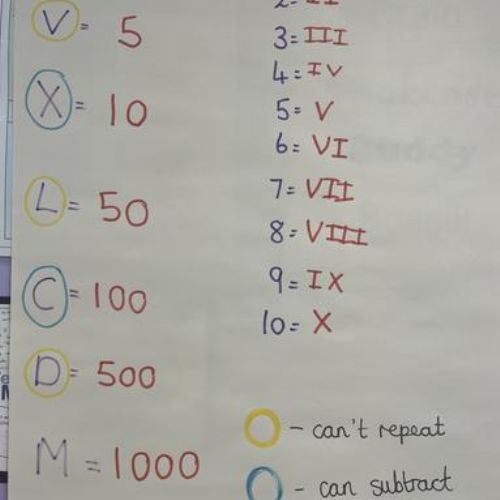 V = 5
X = 10
L = 50
C = 100
D = 500
M = 1000
2 = II
3 = III
4 = IV
5 = V
6 = VI
7 = VII
8 = VIII
9 = IX
10 = X
- can't repeat
- can subtract